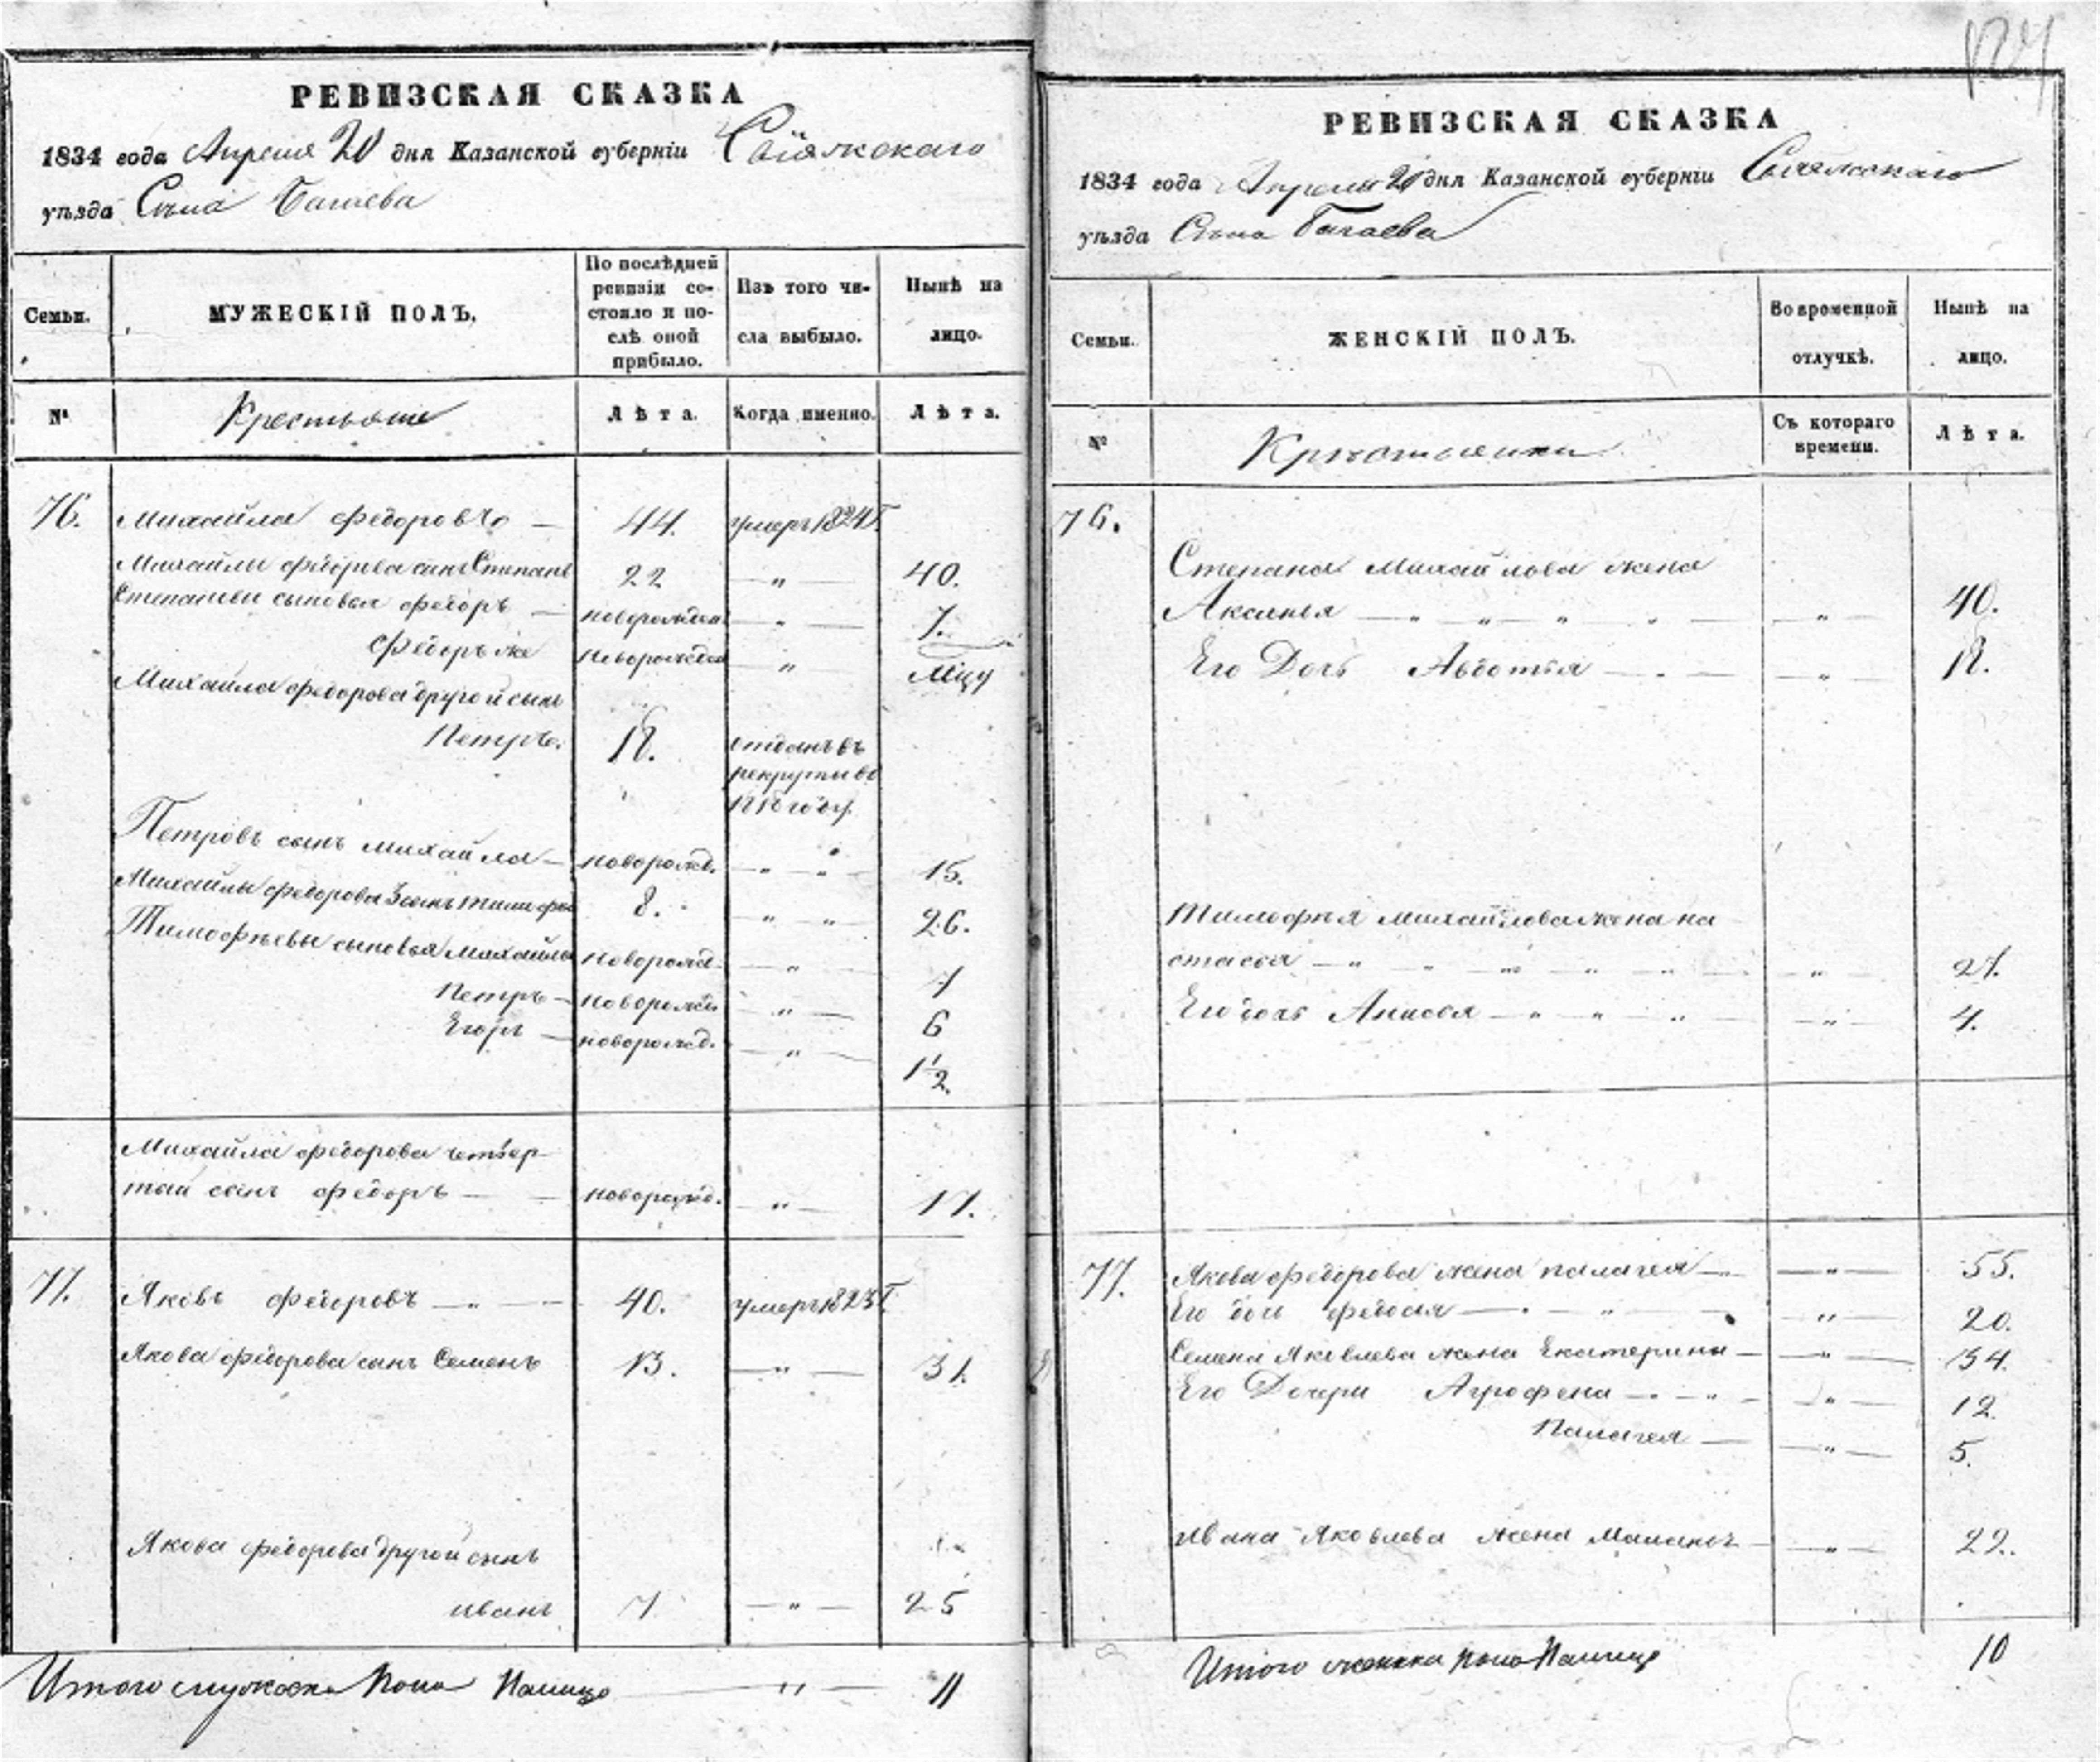 РЕВИЗСКАЯ СКАЗКА
1834 года Апреля 20 дня Казанской губерніи Свіяжскаго
уѣзда Села Багаева
Семьи.
МУЖЕСКІЙ ПОЛЪ.
По послѣдней
ревизіи со-
стояло и по-
слѣ оной
прибыло.
Изъ того чи-
сла выбыло.
Нынѣ на
лицо.
№
Крестьяне
Лѣта.
Когда именно.
Лѣта.
76. Михайла Федоровъ — 44. умеръ 1824 Г.
Михайлы Федорова сынъ Степанъ 22 — „ — 40.
Степановы сыновья Федоръ — новорожден — „ — 7.
Федоръ же новорожден „ — Мцу
Михайла Федорова другой сынъ
Петръ. 18. отданъ въ
рекруты въ
1818 году.
Петровъ сынъ Михайла — новорожд. — „ „ — 15.
Михайлы Федорова 3 сынъ Тимофей 8. — „ „ — 26.
Тимофѣевы сыновья Михайла новорожд. — „ — 7
Петръ — новорожд — „ — 6
Егоръ — новорожд. — „ — 1 1/2.
Михайла Федорова четвер-
тый сынъ Федоръ — новорожд. — „ — 17.
77. Яковъ Федоровъ — „ — 40. умеръ 1823 Г.
Якова Федорова сынъ Семенъ 13. — „ — 31.
Якова Федорова другой сынъ
Иванъ 7 — „ — 25
Итого мужеска пола налицо — „ — 11
124
РЕВИЗСКАЯ СКАЗКА
1834 года Апреля 20 дня Казанской губерніи Свіяжскаго
уѣзда Села Багаева
Семьи.
ЖЕНСКІЙ ПОЛЪ.
Во временной
отлучкѣ.
Нынѣ на
лицо.
№
Крестьянки
Съ котораго
времени.
Лѣта.
76.
Степана Михайлова жена
Аксинья — „ — „ — „ — „ — 40.
Его Дочь Авдотья — „ — — „ — 18.
Тимофѣя Михайлова жена На
стасья — „ „ „ „ „ — „ — 21.
Его дочь Анисья — „ „ „ — — „ — 4.
77. Якова Федорова жена Палагея — — „ — 55.
Его дочь Федосья — „ — „ 20.
Семена Яковлева жена Екатерина — — „ — 34.
Его Дочери Агрофена — „ — „ — — „ — 12.
Палагея — — „ — 5.
Ивана Яковлева жена — „ — 22.
Итого женска пола налицо 10